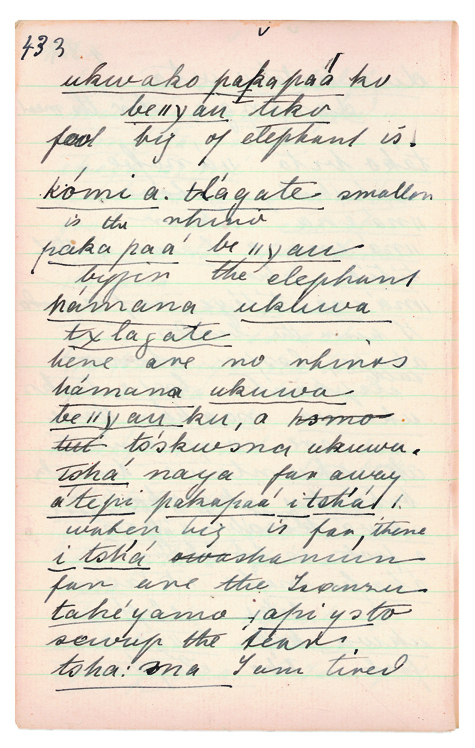 433
ukwako pakapaá ko
be‖yau tiko
foot big of elephant is.
kómi a. tlágate smaller
is the rhino
pakapaá be‖yau
bigger the elephant
hámana ukuwa
tχlagate
here are no rhinos
hámana ukuwa
be‖yau ku, a
tóskwsna ukuwu.
tshá naya far away
átepi pakapaá itshá!
water big is far, there
i tshá
far are the Isanzu
takéyamo, apiysto
sewup the tear
tsha: sna I am tired